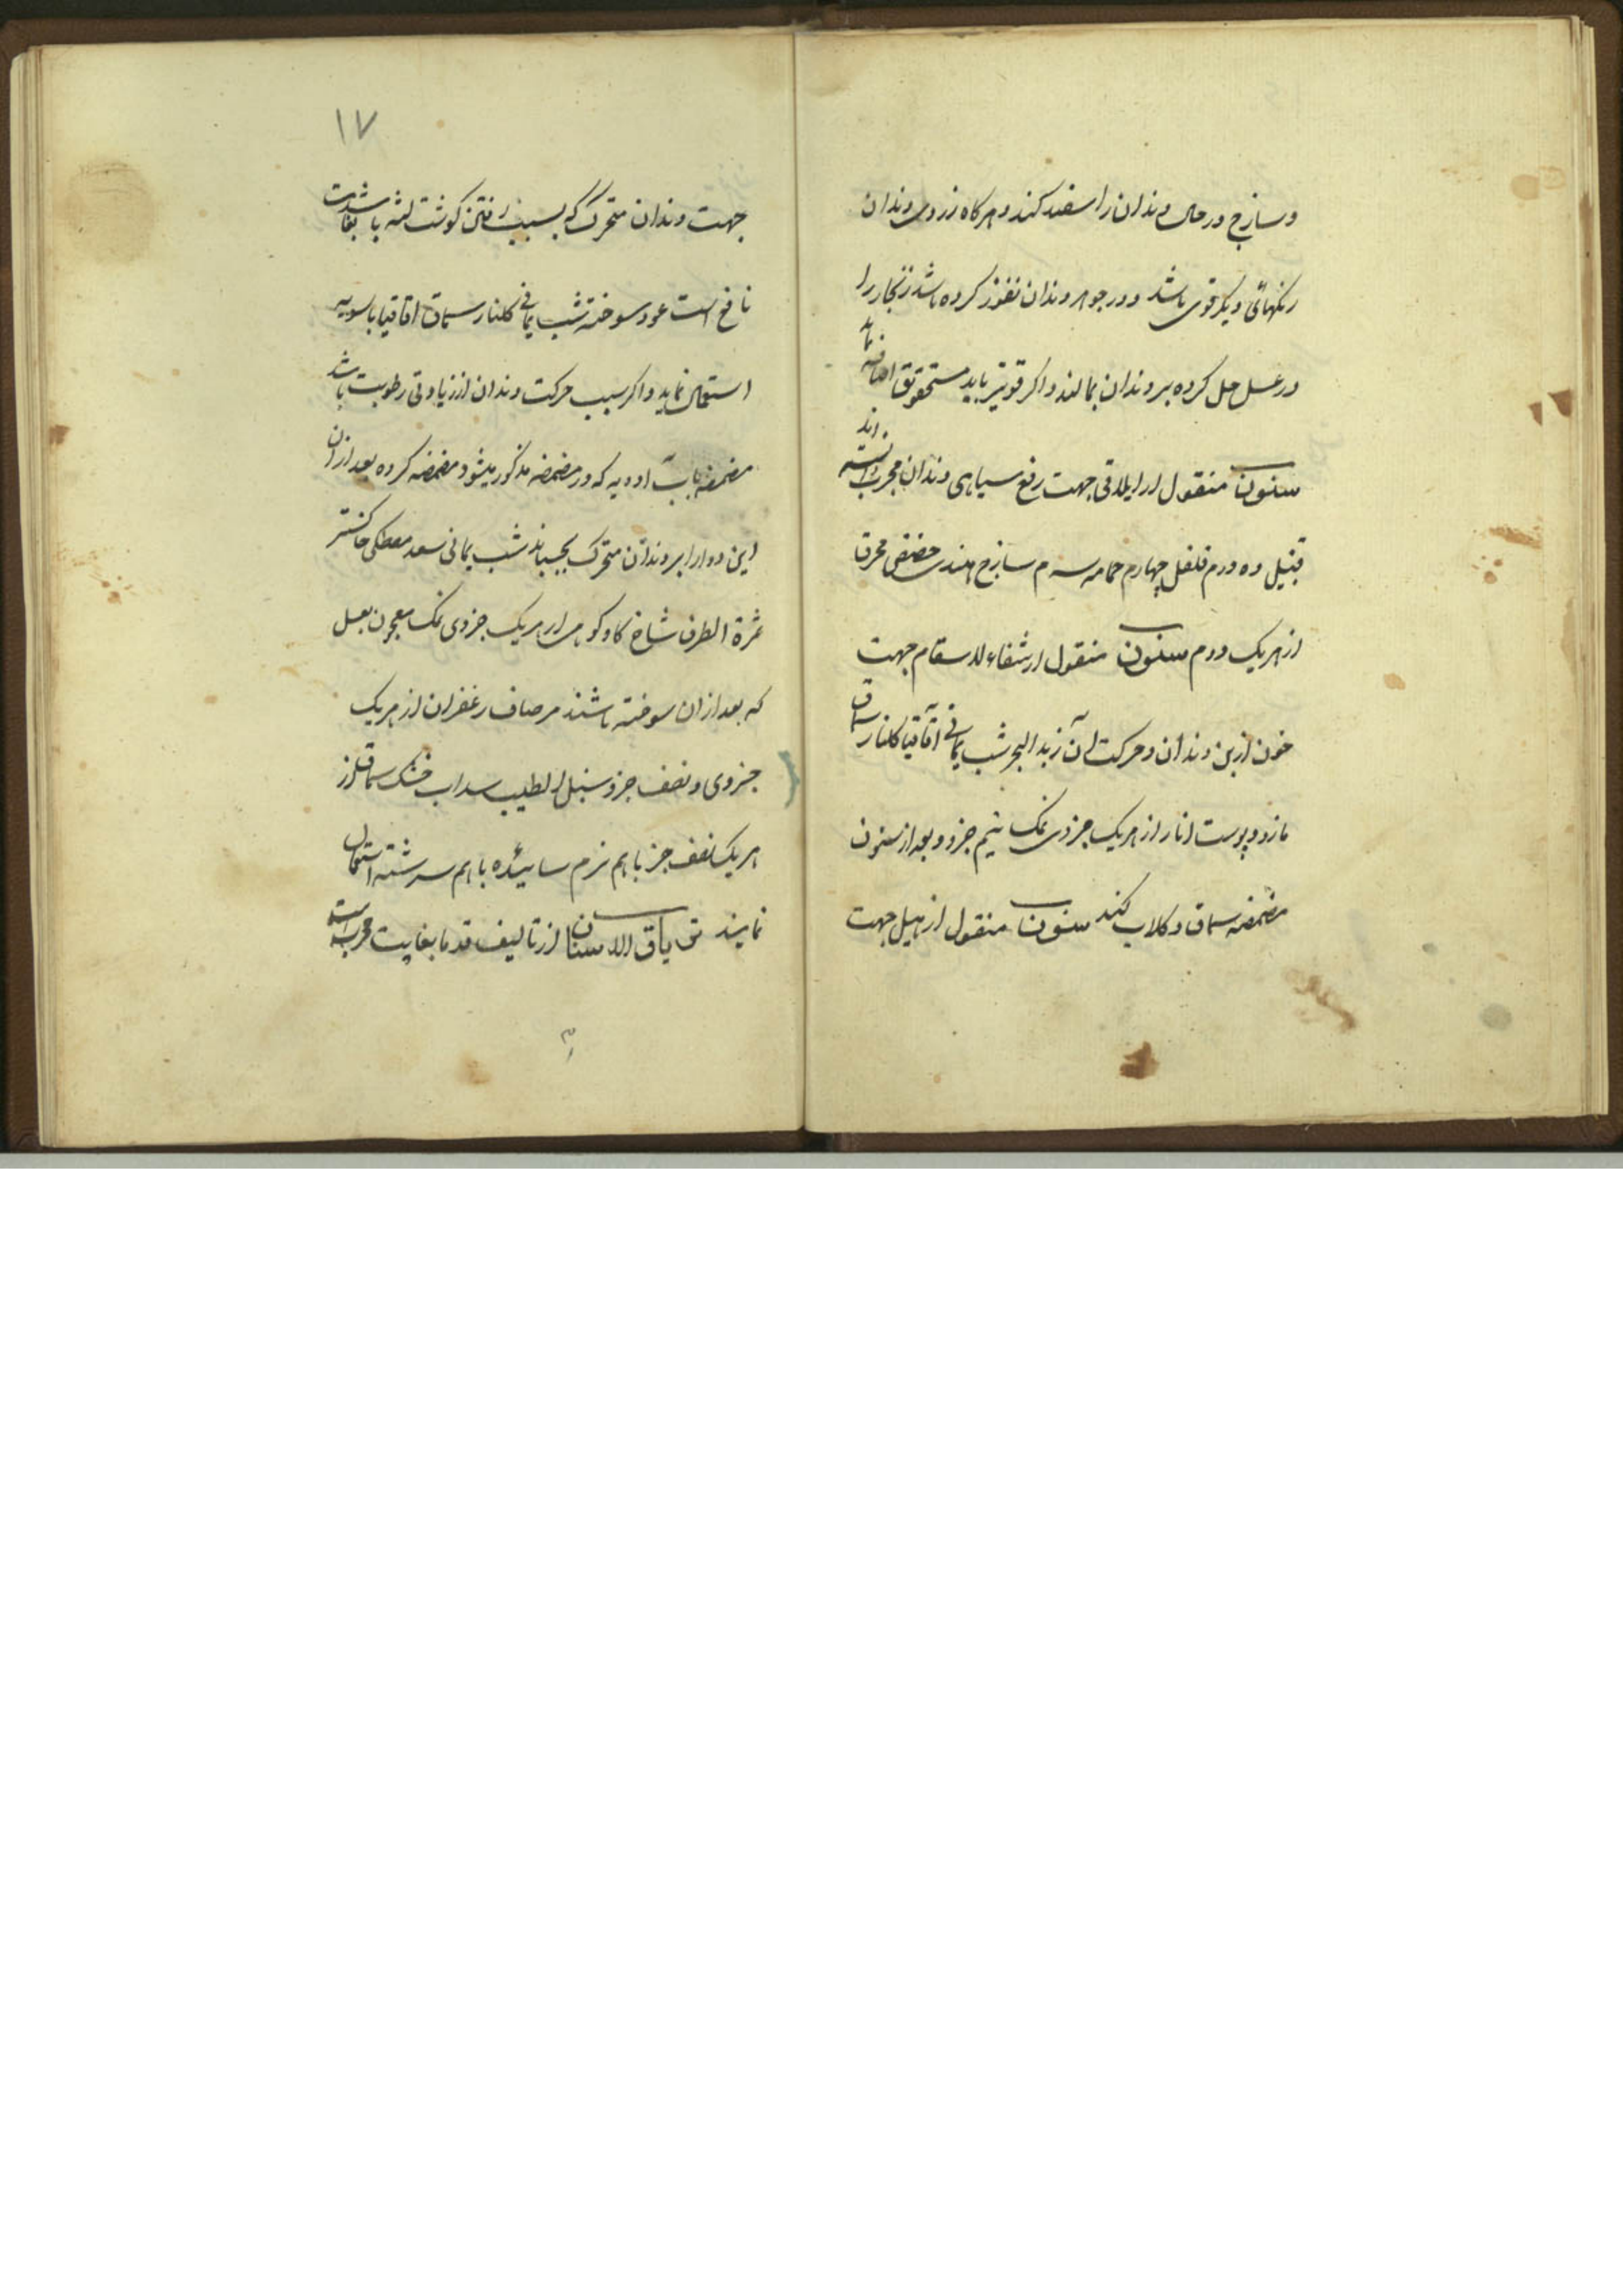 و سازج در حال دندان را سفید کند و هر کاه زردی دندان
رنکهائی دیکر قوی باشد و در جوهر دندان نفوذ کرده باشد زنجار را
در عسل حل کرده بر دندان بمالند و اکر قویتر باید مسحقونیا اضافه نماید
سنون منقول از ایلاقی جهت رفع سیاهی دندان مجرب دانسته اند
قنبیل ده درم فلفل چهار م حمامه سه م سازج هندی حضض محرق
از هریک دو م سنون منقول از شفاء الاسقام جهت
خون از بن دندان و حرکت آن زبد البحر شب یمانی اقاقیا کلنار سماق
مازو و پوست انار از هریک جزوی نمک نیم جزو و بعد از سنون
مضمضه سماق و کلاب کند سنون منقول از جهت
۱۷
جهت دندان متحرک که بسبب رفتن کوشت لثه باشد بغایت
نافع است عود سوخته شب یمانی کلنار سماق اقاقیا بالسویه
استعمال نماید و اکر سبب حرکت دندان از زیادتی رطوبت باشد
مضمضه بآب ادویه که در مضمضه مذکور میشود مضمضه کرده بعد از آن
این دوا را بر دندان متحرک بچسپاند شب یمانی سعد مصطکی خاکستر
ثمرة الطرفا شاخ کاو کوهی از هریک جزوی نمک معجون بعسل
که بعد از آن سوخته باشند مرصاف زعفران از هریک
جزوی و نصف جزو سنبل الطیب سداب خشک سماق از
هریک نصف جز باهم نرم سائیده باهم سرشته استعمال
نمایند تریاق الاسنان از تالیف قدما بغایت مجرب است